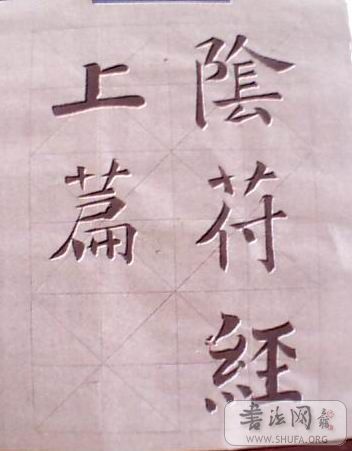 陰符經
上篇
書法网
WWW.SHUFA.ORG